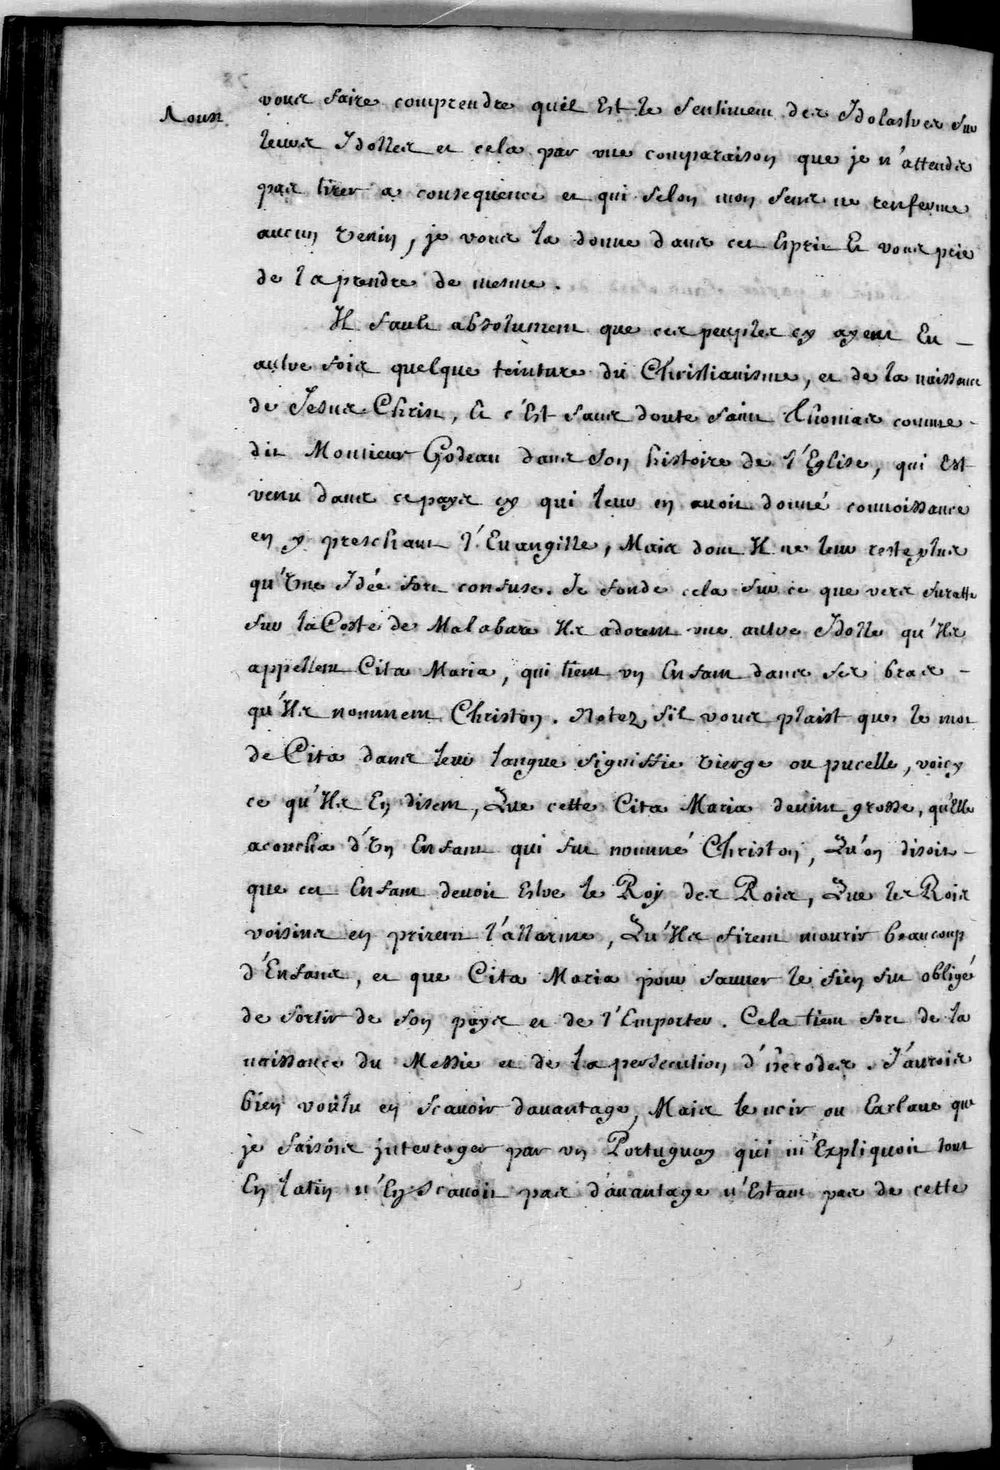 Aoust
vous faire comprendre quel Est le sentiment des Idolastres sur
leurs Idolles et cela par une comparaison que je n'attends
pas tirer a consequence et qui selon mon sens ne renferme
aucun Venin, je vous la donne dans cet Esprit Et vous prie
de la prendre de mesme.
Il fault absolument que ces peuples cy ayent Eu -
aultre fois quelque teinture du Christianisme, et de la naissance
de Jesus Christ, Et c'Est sans doute saint Thomas comme -
dit Monsieur Godeau dans son histoire de l'Eglise, qui Est
venu dans ce pays cy qui leur en avoit donné connoissance
en y preschant l'Evangille, Mais dont Il ne leur reste plus
qu'Une Idée fort confuse. Je fonde cela sur ce que vers Suratte
sur la Coste de Malabare Ils adorent une aultre Idolle qu'Ils
appellent Cita Maria, qui tient un Enfant dans ses bras -
qu'Ils nomment Christon. Notez sil vous plaist que le mot
de Cita dans leur langue signiffie Vierge ou pucelle, voicy
ce qu'Ils En disent, Que cette Cita Maria devint grosse, qu'Elle
acoucha d'Un Enfant qui fut nommé Christon, Qu'on disoit -
que cet Enfant devoit Estre le Roy des Rois, Que les Rois
voisins en prirent l'allarme, Qu'Ils firent mourir beaucoup
d'Enfans, et que Cita Maria pour sauver le sien fut obligé
de sortir de son pays et de l'Emporter. Cela tient fort de la
naissance du Messie et de la persecution d'herodes. J'aurois
bien voulu en scavoir davantage, Mais le noir ou Esclave que
je faisois interroger par un Portuguay qui m'Expliquoit tout
En latin n'En Scavoit pas davantage n'Estant pas de cette